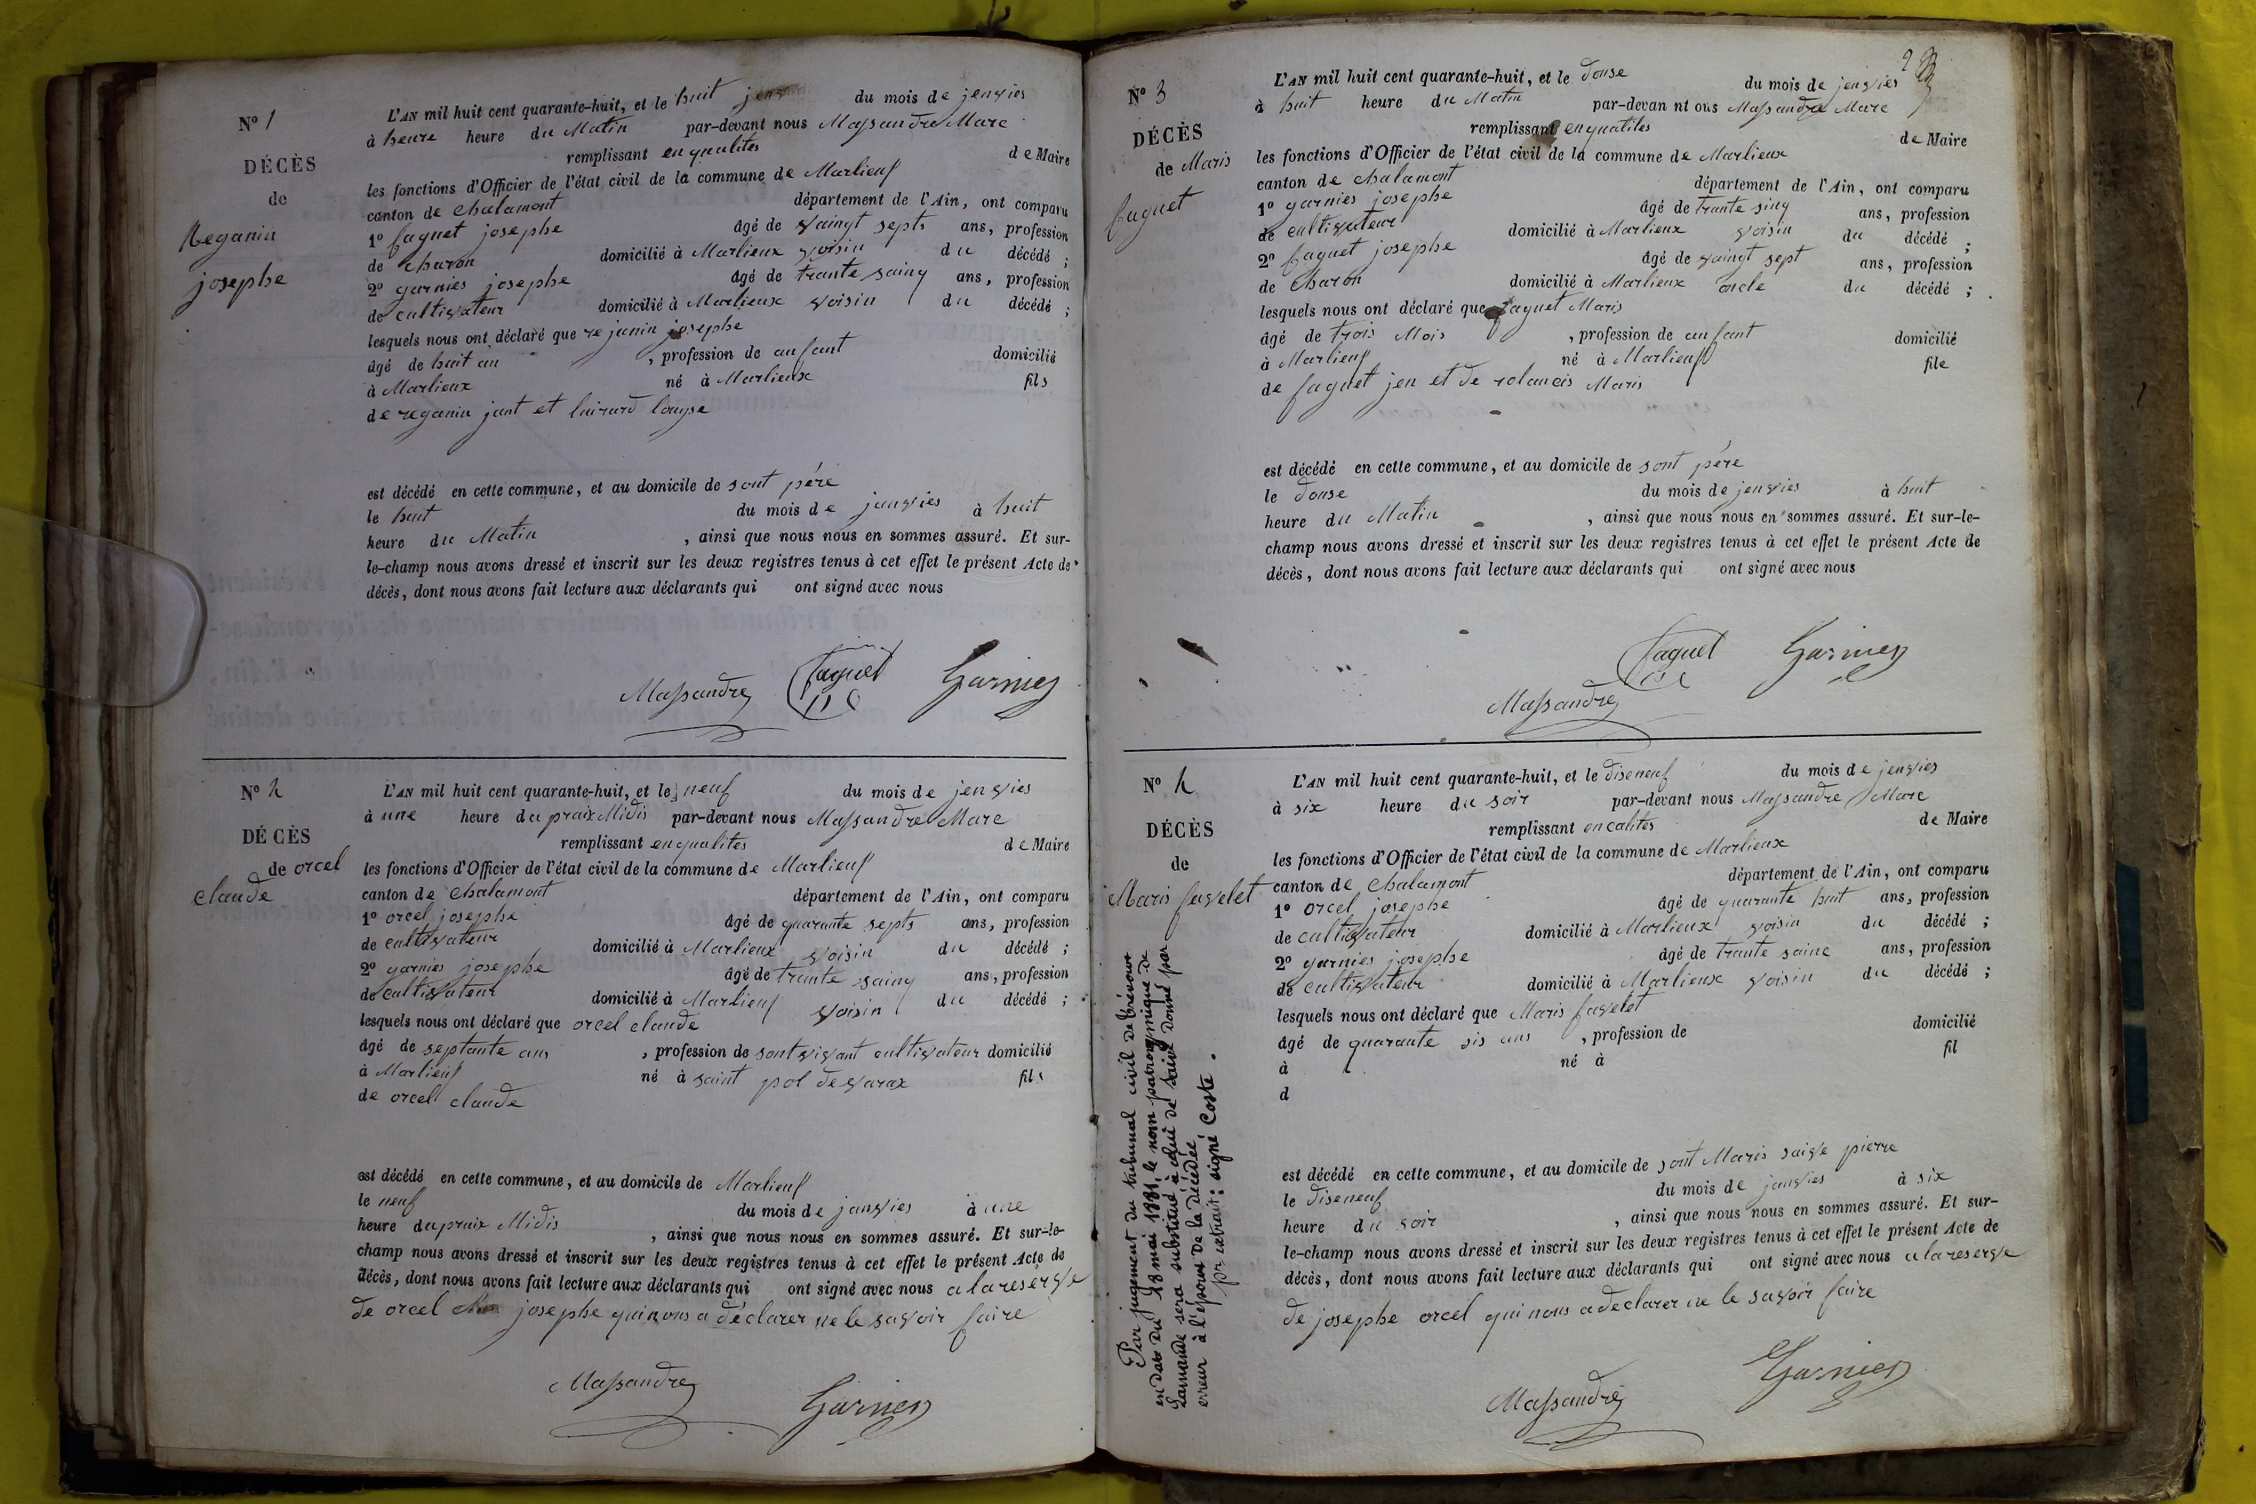 N° 1
DÉCÈS
de
Reganin
josephe
L'AN mil huit cent quarante-huit, et le huit du mois de jenvies
à heure heure du Matin par-devant nous Massandre Marc
remplissant en qualites de Maire
les fonctions d'Officier de l'état civil de la commune de Marlieuf
canton de chalamont département de l'Ain, ont comparu
1° faguet josephe âgé de vaingt septs ans, profession
de charon domicilié à Marlieux voisin du décédé ;
2° garnies josephe âgé de trante sainq ans, profession
de cultivateur domicilié à Marlieux voisin du décédé ;
lesquels nous ont déclaré que rejanin josephe
âgé de huit an , profession de anfant domicilié
à Marlieux né à Marlieux fils
de reganin jant et louyse
est décédé en cette commune, et au domicile de sont pére
le huit du mois de janvies à huit
heure du Matin , ainsi que nous nous en sommes assuré. Et sur-
le-champ nous avons dressé et inscrit sur les deux registres tenus à cet effet le présent Acte de
décès, dont nous avons fait lecture aux déclarants qui ont signé avec nous
Massandre faguet Garnier
N° 2
DÉCÈS
de orcel
claude
L'AN mil huit cent quarante-huit, et le neuf du mois de jenvies
à une heure du praix Midis par-devant nous Massandre Marc
remplissant en qualites de Maire
les fonctions d'Officier de l'état civil de la commune de Marlieuf
canton de chalamont département de l'Ain, ont comparu
1° orcel josephe âgé de quarante septs ans, profession
de cultivateur domicilié à Marlieux voisin du décédé ;
2° garnies josephe âgé de trante sainq ans, profession
de cultivateur domicilié à Marlieuf voisin du décédé ;
lesquels nous ont déclaré que orcel claude
âgé de septante ans , profession de sont vivant cultivateur domicilié
à Marlieuf né à saint pol de varax fils
de orcel claude
est décédé en cette commune, et au domicile de Marlieuf
le neuf du mois de janvies à une
heure du praix Midis , ainsi que nous nous en sommes assuré. Et sur-le-
champ nous avons dressé et inscrit sur les deux registres tenus à cet effet le présent Acte de
décès, dont nous avons fait lecture aux déclarants qui ont signé avec nous a la reserve
de orcel josephe qui nous a déclarer ne le savoir faire
Massandre Garnier
N° 3
DÉCÈS
de Maris
faguet
L'AN mil huit cent quarante-huit, et le douse du mois de jenvies
à huit heure du Matin par-devan nt ous Massandre Marc
remplissant en qualites de Maire
les fonctions d'Officier de l'état civil de la commune de Marlieux
canton de chalamont département de l'Ain, ont comparu
1° garnies josephe âgé de trante sinq ans, profession
de cultivateur domicilié à Marlieux voisin du décédé ;
2° faguet josephe âgé de vaingt sept ans, profession
de Charon domicilié à Marlieux oncle du décédé ;
lesquels nous ont déclaré que faguet Maris
âgé de trois Mois , profession de anfant domicilié
à Marlieuf né à Marlieuf file
de faguet jen et de Maris
est décédé en cette commune, et au domicile de sont pére
le douse du mois de jenvies à huit
heure du Matin , ainsi que nous nous en sommes assuré. Et sur-le-
champ nous avons dressé et inscrit sur les deux registres tenus à cet effet le présent Acte de
décès, dont nous avons fait lecture aux déclarants qui ont signé avec nous
Massandre faguet Garnier
N° 4
DÉCÈS
de
Maris favelet
L'AN mil huit cent quarante-huit, et le diseneuf du mois de jenvies
à six heure du soir par-devant nous Massandre Marc
remplissant en calites de Maire
les fonctions d'Officier de l'état civil de la commune de Marlieux
canton de chalamont département de l'Ain, ont comparu
1° orcel josephe âgé de quarante huit ans, profession
de cultivateur domicilié à Marlieux voisin du décédé ;
2° garnies josephe âgé de trante saine ans, profession
de cultivateur domicilié à Marlieux voisin du décédé ;
lesquels nous ont déclaré que Maris favelet
âgé de quarante sis ans , profession de domicilié
à né à fil
d
est décédé en cette commune, et au domicile de sont Maris saive pierre
le diseneuf du mois de janvies à six
heure du soir , ainsi que nous nous en sommes assuré. Et sur-
le-champ nous avons dressé et inscrit sur les deux registres tenus à cet effet le présent Acte de
décès, dont nous avons fait lecture aux déclarants qui ont signé avec nous a la reserve
de josephe orcel qui nous a declarer ne le savoir faire
Massandre Garnier
Par jugement du tribunal civil de Trévoux
en date du 13 mai 1881, le nom patronymique de
Lamande sera substitué à celui de Saive donné par
erreur à l'époux de la décédée
pr extrait : signé Coste.